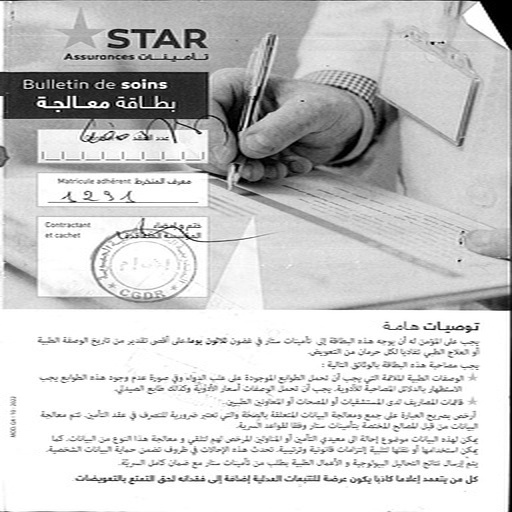 STAR
Assurances تأمينات
Bulletin de soins
بطاقة معالجة
عدد العقد
Matricule adhérent معرف المنخرط
1291
Contractant ختم و إمضاء
et cachet المؤسسة المتعاقدة
CGDR
توصيات هامة
يجب على المؤمن له أن يوجه هذه البطاقة إلى تأمينات ستار في غضون ثلاثون يوما على أقصى تقدير من تاريخ الوصفة الطبية
أو العلاج الطبي تفاديا لكل حرمان من التعويض.
يجب مصاحبة هذه البطاقة بالوثائق التالية :
الوصفات الطبية الملائمة التي يجب أن تحمل الطوابع الموجودة على علب الدواء وفي صورة عدم وجود هذه الطوابع يجب
الاستظهار بالدلائل المصاحبة للأدوية. يجب أن تحمل الوصفات أسعار الأدوية وكذلك طابع الصيدلي.
قائمات المصاريف لدى المستشفيات أو المصحات أو المعاونين الطبيين.
أرخص بصريح العبارة على جمع ومعالجة البيانات المتعلقة بالصحة والتي تعتبر ضرورية للتصرف في عقد التأمين. تتم معالجة
البيانات من قبل المصالح المختصة بتأمينات ستار وفقا لقواعد السرية.
يمكن لهذه البيانات موضوع إحالة الى معيدي التأمين أو المناولين المرخص لهم لتلقي و معالجة هذا النوع من البيانات. كما
يمكن استخدامها أو نقلها لتلبية إلتزامات قانونية وترتيبية. تحدث هذه الإحالات في ظروف تضمن حماية البيانات الشخصية.
يتم إرسال نتائج التحاليل البيولوجية و الأعمال الطبية بطلب من تأمينات ستار مع ضمان كامل السرية.
كل من يتعمد إعلاما كاذبا يكون عرضة للتتبعات العدلية إضافة إلى فقدانه لحق التمتع بالتعويضات.